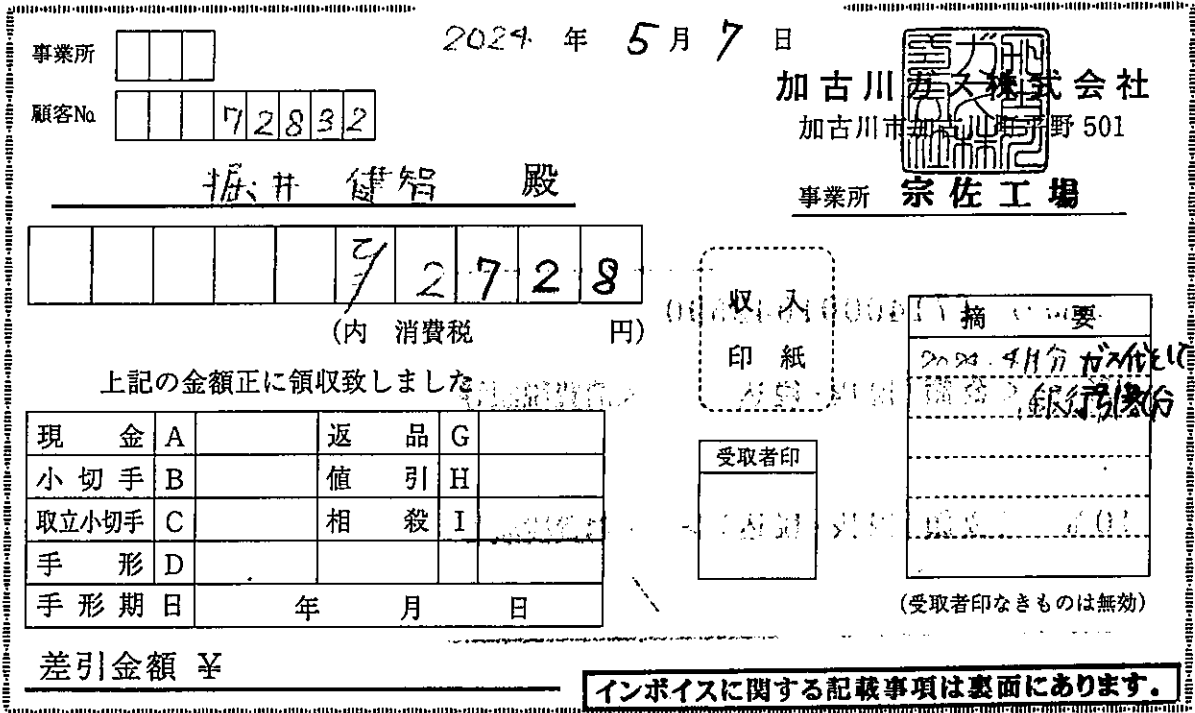 2024 年 5 月 7 日
事業所
顧客No. 72832
堀井 健智 殿
加古川ガス株式会社
加古川市加古川町平野 501
事業所 宗佐工場
2728
(内 消費税 円)
収入
印紙
上記の金額正に領収致しました
摘要
2024. 4月分 ガス代として
銀行引落分
現金 A 返品 G
小切手 B 値引 H
取立小切手 C 相殺 I
手形 D
手形期日 年 月 日
受取者印
(受取者印なきものは無効)
差引金額 ¥
インボイスに関する記載事項は裏面にあります。